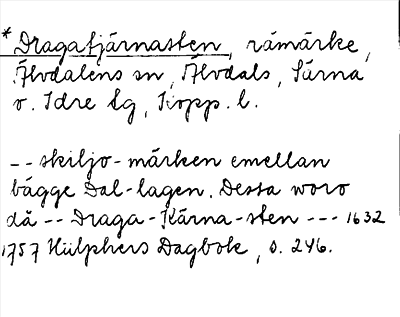 *Dragatjärnasten, råmärke,
Älvdalens sn, Älvdals, Särna
o. Idre tg, Kopp. l.
-- skiljo-märken emellan
bägge Dal-lagen. Dessa woro
då -- Draga-Kärna-sten --- 1632
1757 Hülphers Dagbok, s. 246.